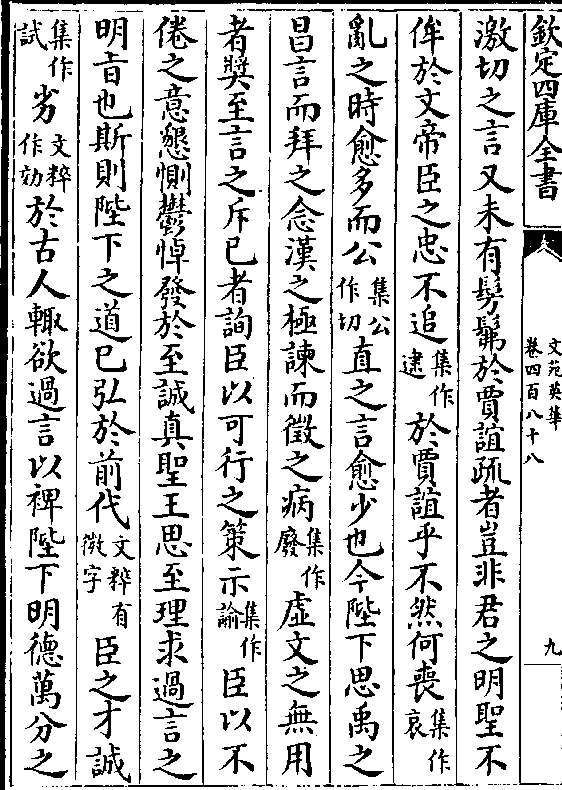 欽定四庫全書
文苑英華
卷四百八十八
九
激切之言又未有髣髴於賈誼疏者豈非君之明聖不
侔於文帝臣之忠不追集作逮於賈誼乎不然何喪集作衰
亂之時愈多而公集公作切直之言愈少也今陛下思禹之
昌言而拜之念漢之極諫而徵之病集作廢虛文之無用
者奬至言之斥已者詢臣以可行之策示集作諭臣以不
倦之意懇惻鬱悼發於至誠真聖王思至理求過言之
明㫖也斯則陛下之道已弘於前代文粹有微字臣之才誠
集作試劣文粹作効於古人輙欲過言以裨陛下明德萬分之